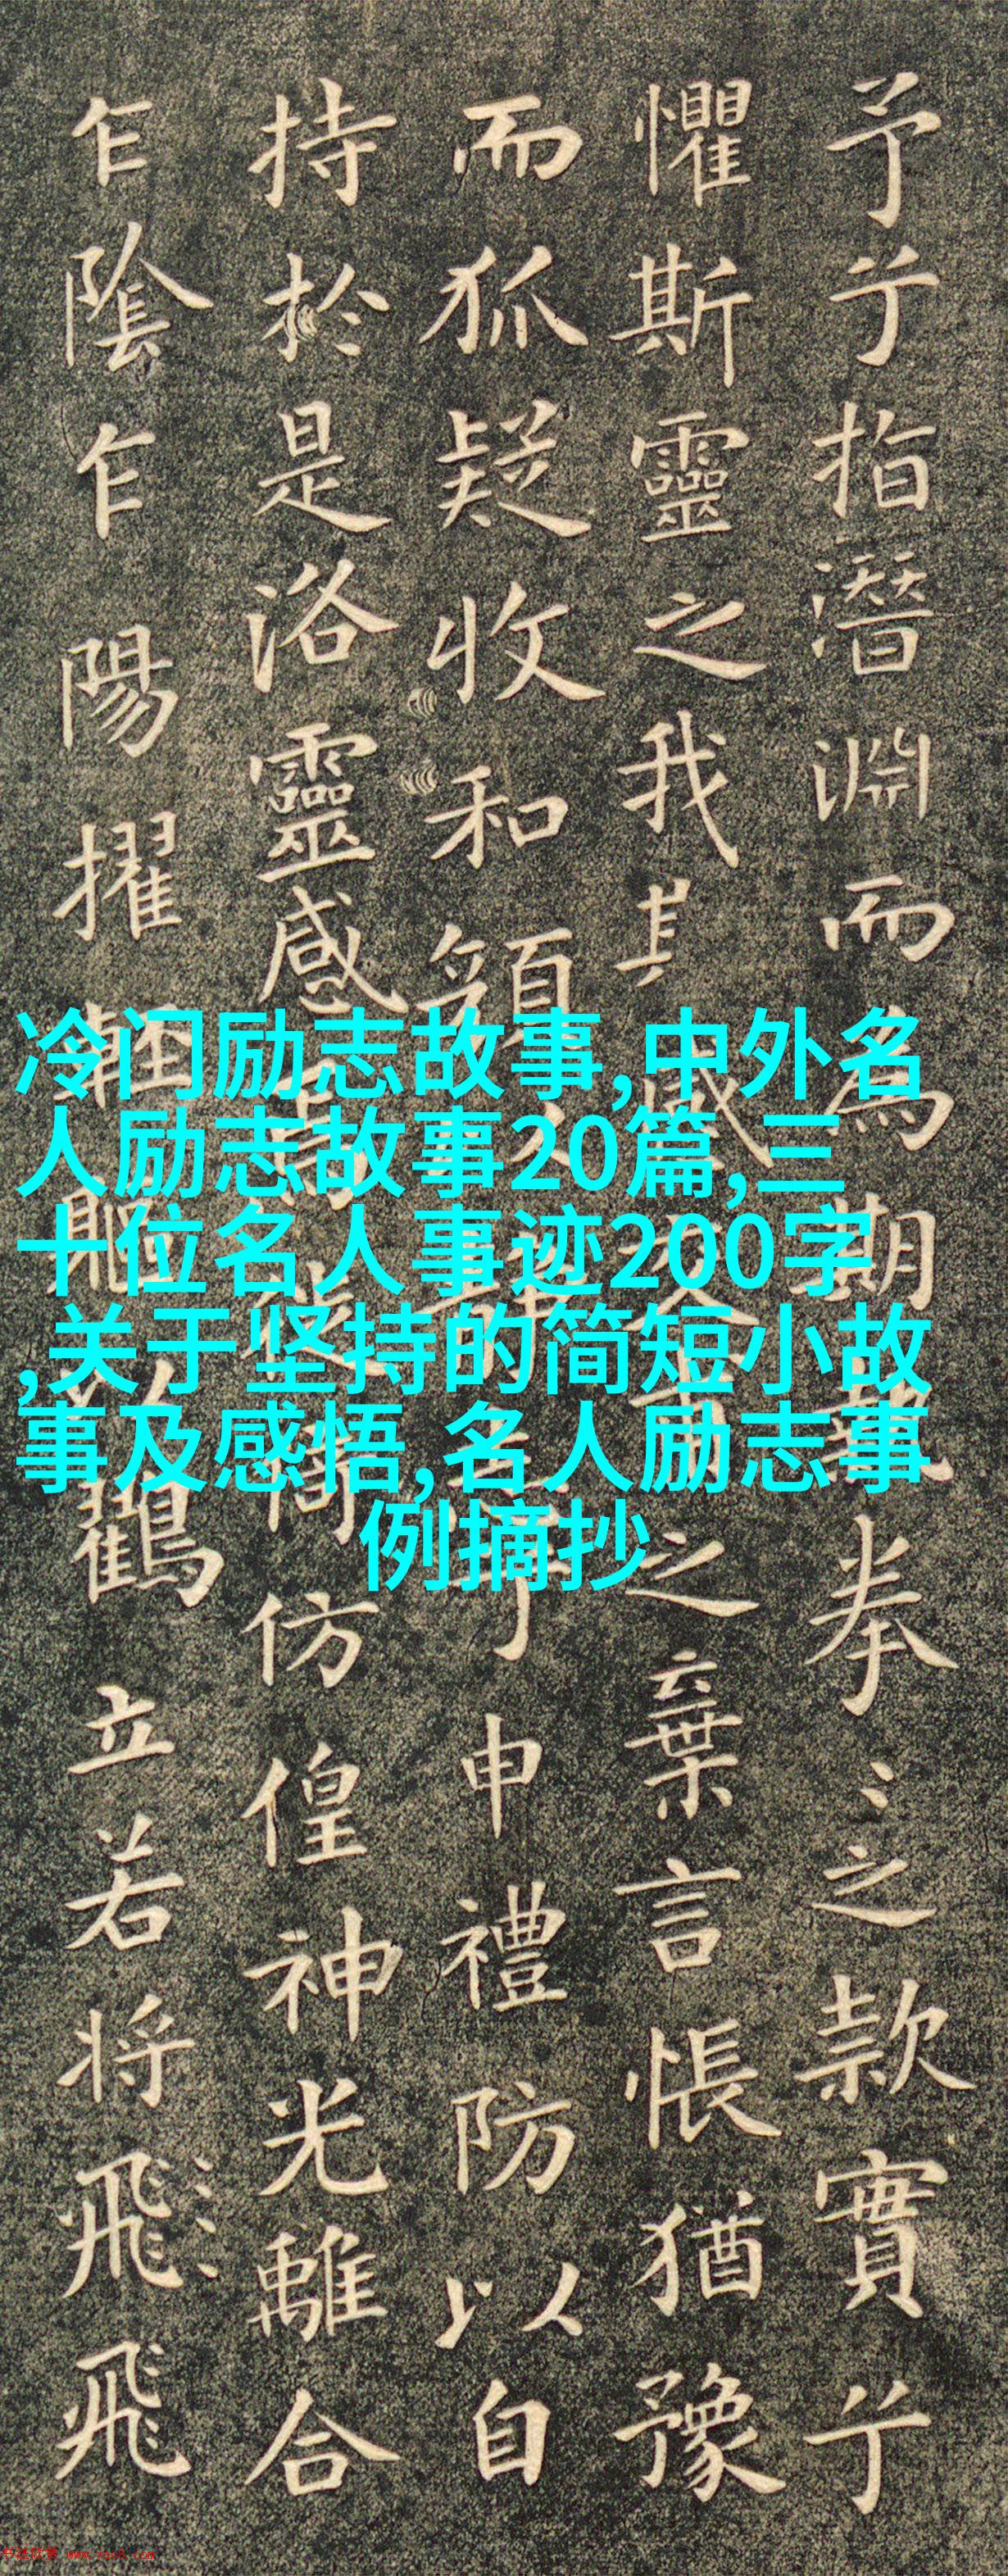 予兮指潛淵而為期執拳〻之款實兮
懼斯靈之我其感交甫之棄言悵猶豫
而狐疑收和顏靜兮申禮防以自
持於是洛靈感焉徙倚仿偟神光離合
乍陰乍陽擢輕軀以鶴立若將飛飛
冷门励志故事,中外名
人励志故事20篇,三
十位名人事迹200字
,关于坚持的简短小故
事及感悟,名人励志事
例摘抄